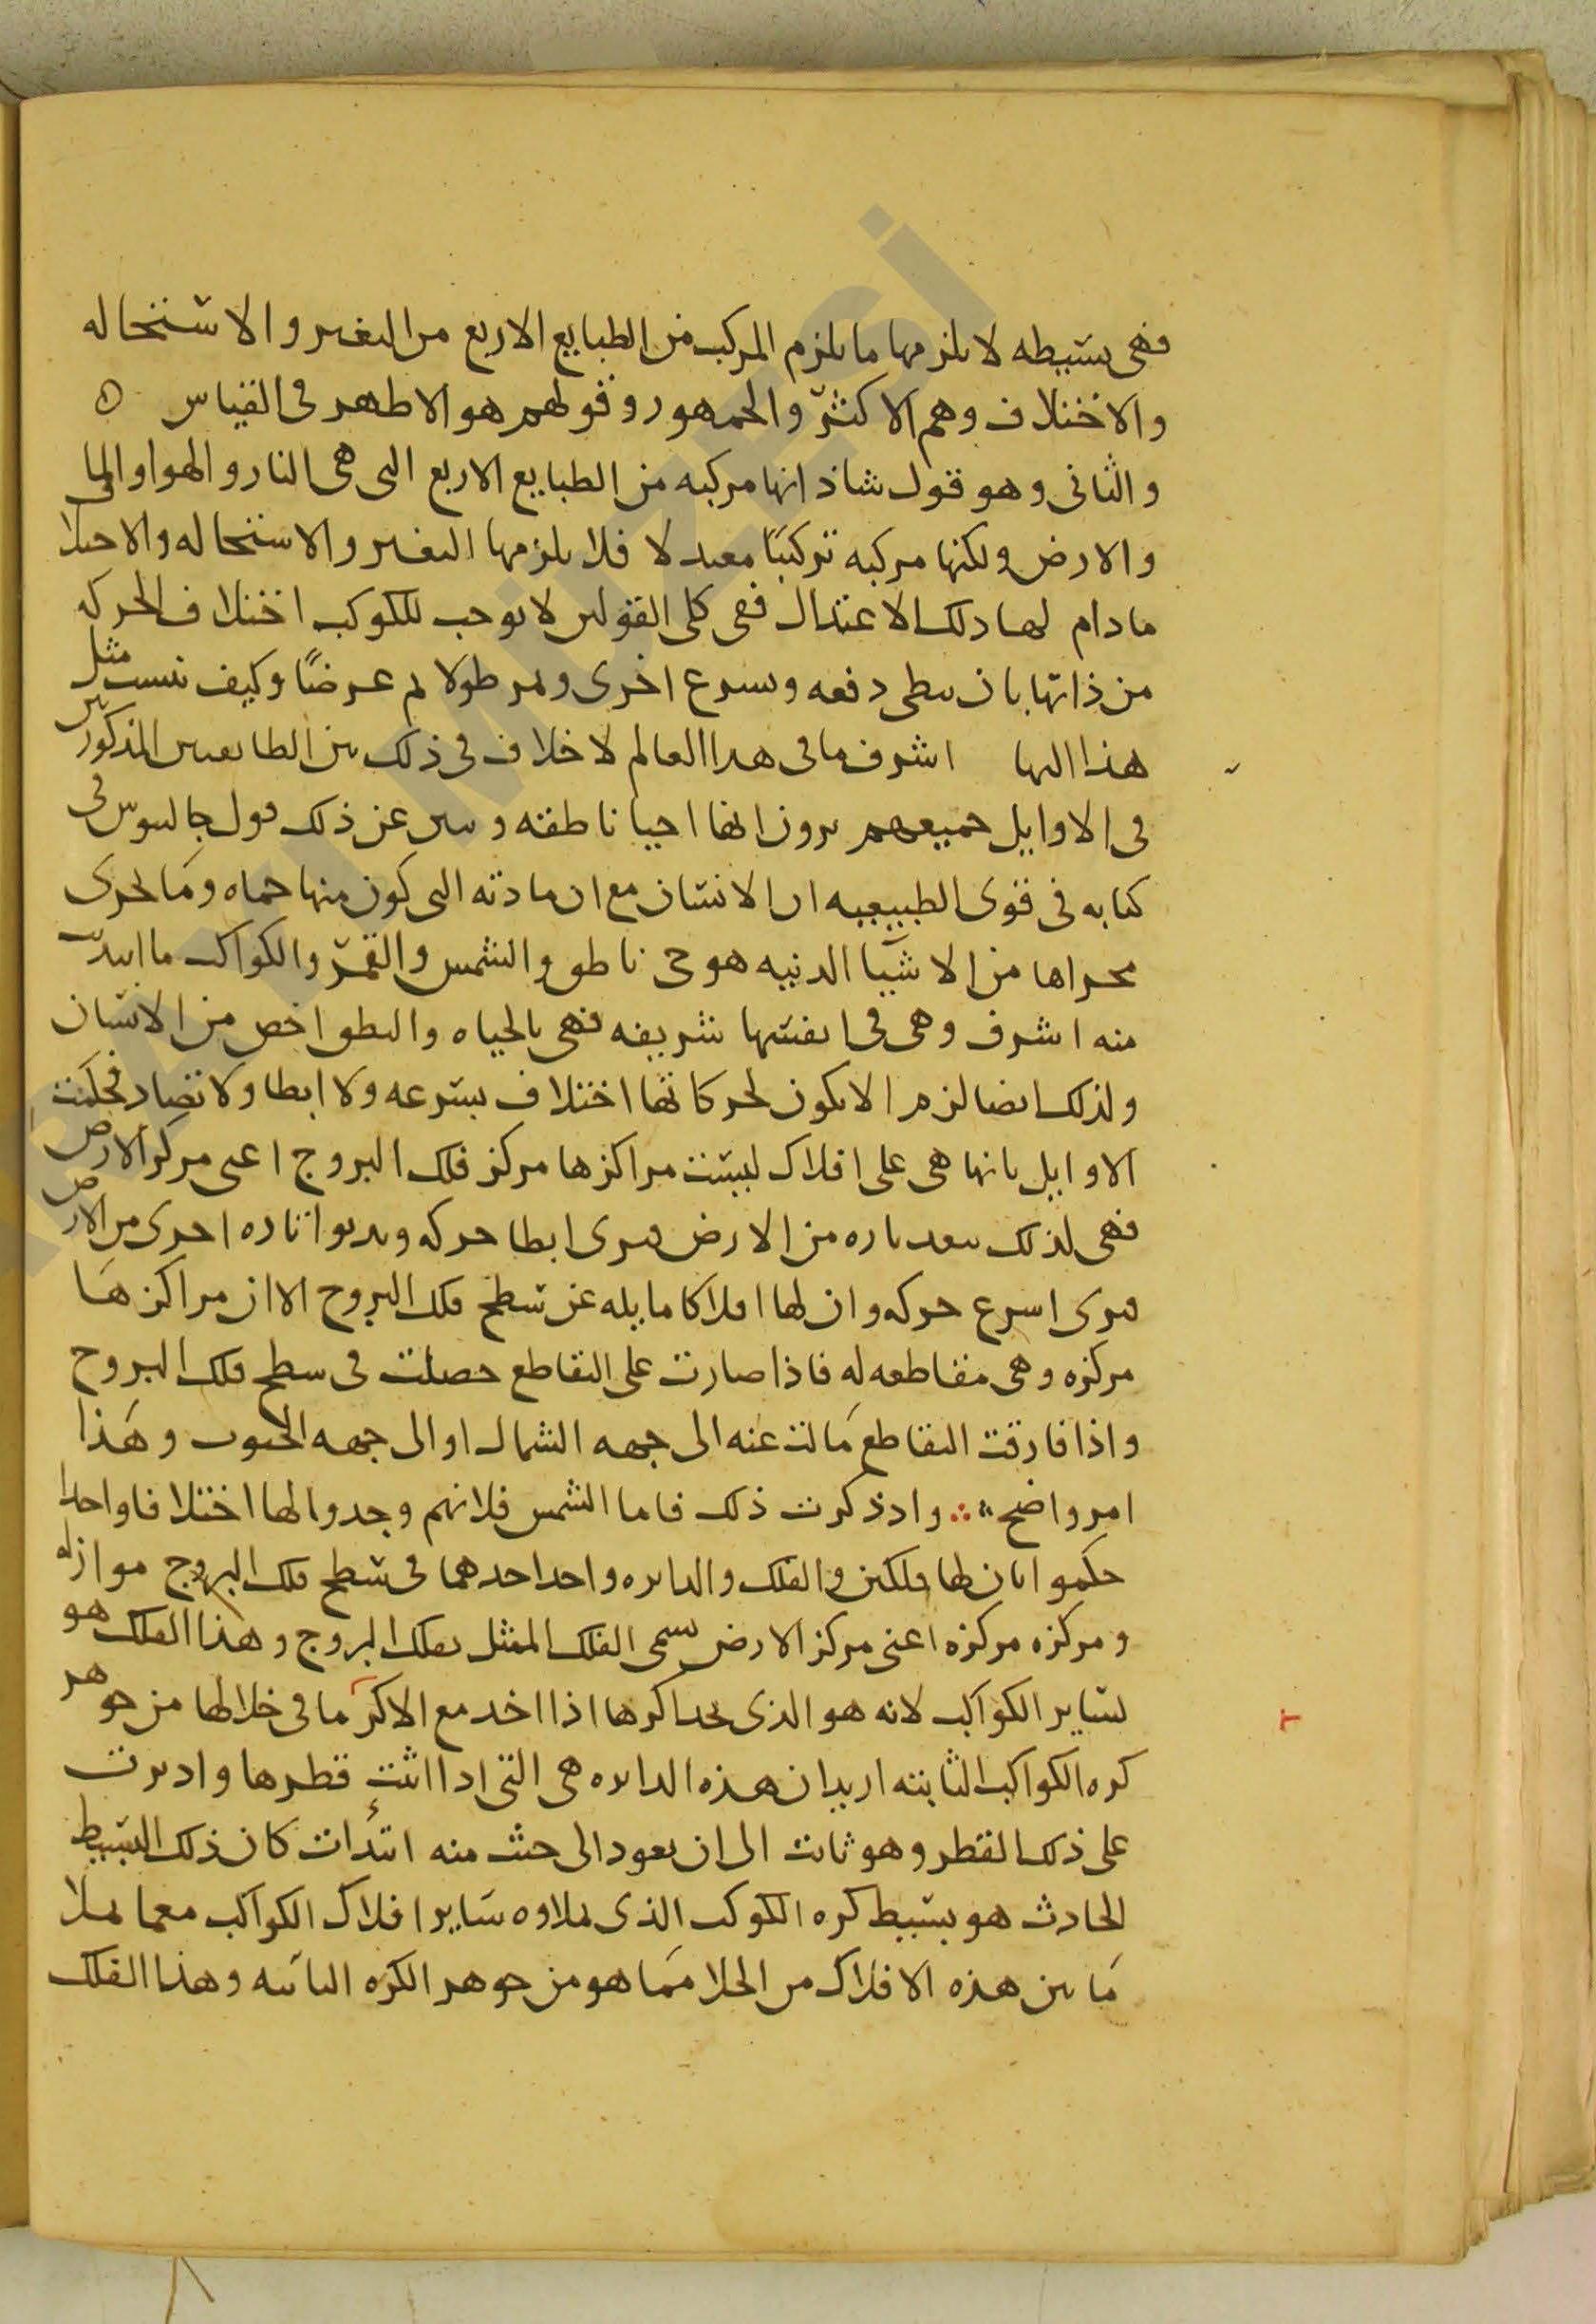 فهى بسيطه لا يلزمها ما يلزم المركب من الطبايع الاربع من التغير والاستحاله
والاختلاف وهم الاكثر والجمهور وقولهم هو الاظهر فى القياس ه
والثانى وهو قول شاذ انها مركبه من الطبايع الاربع التى هى النار والهوا والما
والارض ولكنها مركبه تركيبا معتدلا فلا يلزمها التغير والاستحاله والاختلا
مادام لها ذلك الاعتدال ففى كلى القولين لا يوجب للكوكب اختلاف الحركه
من ذاتها بان يبطى دفعه ويسرع اخرى ويمر طولا ثم عرضًا وكيف ينسب مثل
هذا اليها اشرف ما فى هذا العالم لا خلاف فى ذلك بين الطايفتين المذكورتين
فى الاوايل جميعهم يرون انها احيا ناطقه ويبين عن ذلك قول جالينوس فى
كتابه فى قوى الطبيعيه ان الانسان مع ان مادته التى كون منها حماه وما يجرى
مجراها من الاشيا الدنيه هو حى ناطق والشمس والقمر والكواكب مااستدت
منه اشرف وهى فى انفسها شريفه فهى بالحياه والنطق اخص من الانسان
ولذلك ايضا لزم الا يكون لحركاتها اختلاف بسرعه ولا ابطا ولا تضاد فحكمت
الاوايل بانها هى على افلاك ليست مراكزها مركز فلك البروج اعنى مركز الارض
فهى لذلك تبعد تاره من الارض فترى ابطا حركه وتدنوا تاره اخرى من الارض
فترى اسرع حركه وان لها افلاكا مايله عن سطح فلك البروج الا ان مراكزها
مركزه وهى مقاطعه له فاذا صارت على التقاطع حصلت فى سطح فلك البروج
واذا فارقت التقاطع مالت عنه الى جهه الشمال او الى جهه الجنوب وهذا
امر واضح ∴ واذ ذكرت ذلك فاما الشمس فلانهم وجدوا لها اختلافا واحدا
حكموا بان لها فلكين والفلك والدايره واحد احدهما فى سطح فلك البروج موازله
ومركزه مركزه اعنى مركز الارض يسمى الفلك الممثل بفلك البروج وهذا الفلك هو
لساير الكواكب لانه هو الذى يحد اكرها اذا اخذ مع الاكر ما فى خلالها من جوهر
كره الكواكب الثابته اريد ان هذه الدايره هى التى اذا اثبت قطرها وادبرت
على ذلك القطر وهو ثابت الى ان يعود الى حيث منه ابتدأت كان ذلك البسيط
الحادث هو بسيط كره الكوكب الذى يملاوه ساير افلاك الكواكب معما يملا
ما بين هذه الافلاك من الخلا مما هو من جوهر الكره الثابته وهذا الفلك